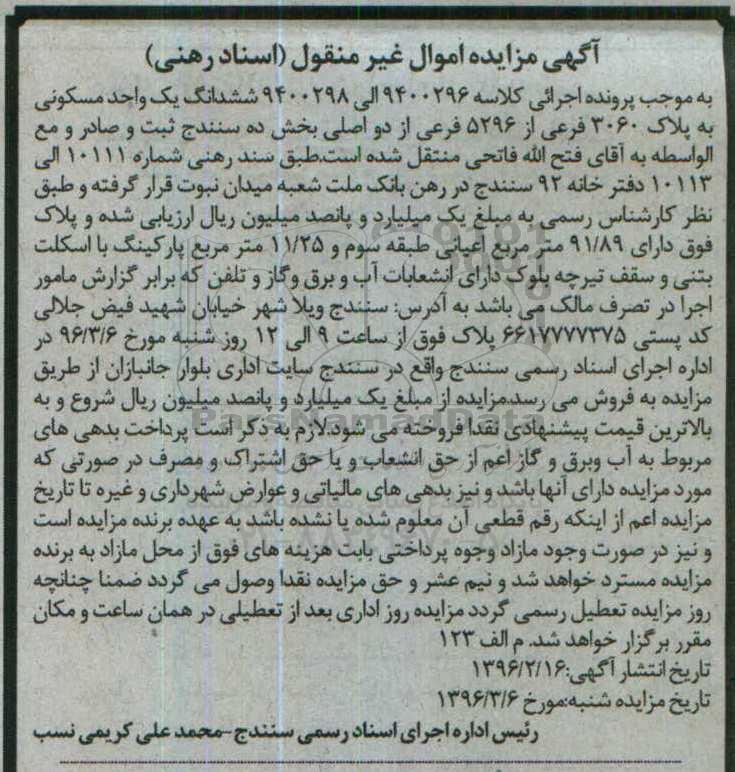 آگهی مزایده اموال غیر منقول (اسناد رهنی)
به موجب پرونده اجرائی کلاسه ۹۴۰۰۲۹۶ الی ۹۴۰۰۲۹۸ ششدانگ یک واحد مسکونی
به پلاک ۳۰۶۰ فرعی از ۵۲۹۶ فرعی از دو اصلی بخش ده سنندج ثبت و صادر و مع
الواسطه به آقای فتح الله فاتحی منتقل شده است.طبق سند رهنی شماره ۱۰۱۱۱ الی
۱۰۱۱۳ دفتر خانه ۹۲ سنندج در رهن بانک ملت شعبه میدان نبوت قرار گرفته و طبق
نظر کارشناس رسمی به مبلغ یک میلیارد و پانصد میلیون ریال ارزیابی شده و پلاک
فوق دارای ۹۱/۸۹ متر مربع اعیانی طبقه سوم و ۱۱/۲۵ متر مربع پارکینگ با اسکلت
بتنی و سقف تیرچه بلوک دارای انشعابات آب و برق وگاز و تلفن که برابر گزارش مامور
اجرا در تصرف مالک می باشد به آدرس: سنندج ویلا شهر خیابان شهید فیض جلالی
کد پستی ۶۶۱۷۷۷۷۳۷۵ پلاک فوق از ساعت ۹ الی ۱۲ روز شنبه مورخ ۹۶/۳/۶ در
اداره اجرای اسناد رسمی سنندج واقع در سنندج سایت اداری بلوار جانبازان از طریق
مزایده به فروش می رسد.مزایده از مبلغ یک میلیارد و پانصد میلیون ریال شروع و به
بالاترین قیمت پیشنهادی نقدا فروخته می شود.لازم به ذکر است پرداخت بدهی های
مربوط به آب وبرق و گاز اعم از حق انشعاب و یا حق اشتراک و مصرف در صورتی که
مورد مزایده دارای آنها باشد و نیز بدهی های مالیاتی و عوارض شهرداری و غیره تا تاریخ
مزایده اعم از اینکه رقم قطعی آن معلوم شده یا نشده باشد به عهده برنده مزایده است
و نیز در صورت وجود مازاد وجوه پرداختی بابت هزینه های فوق از محل مازاد به برنده
مزایده مسترد خواهد شد و نیم عشر و حق مزایده نقدا وصول می گردد ضمنا چنانچه
روز مزایده تعطیل رسمی گردد مزایده روز اداری بعد از تعطیلی در همان ساعت و مکان
مقرر برگزار خواهد شد. م الف ۱۲۳
تاریخ انتشار آگهی:۱۳۹۶/۲/۱۶
تاریخ مزایده شنبه:مورخ ۱۳۹۶/۳/۶
رئیس اداره اجرای اسناد رسمی سنندج-محمد علی کریمی نسب
ParsNamadData